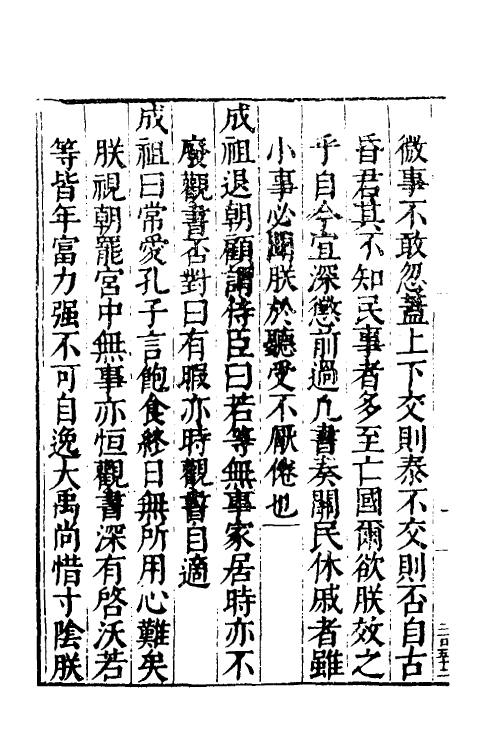 微事不敢忽蓋上下交則泰不交則否自古
昏君其不知民事者多至亡國爾欲朕效之
乎自今宜深懲前過凡書奏關民休戚者雖
小事必聞朕於聽受不厭倦也
成祖退朝顧謂侍臣曰若等無事家居時亦不
廢觀書否對曰有暇亦時觀書自適
成祖曰常愛孔子言飽食終日無所用心難矣
朕視朝罷宮中無事亦恒觀書深有啓沃若
等皆年富力强不可自逸大禹尚惜寸陰朕